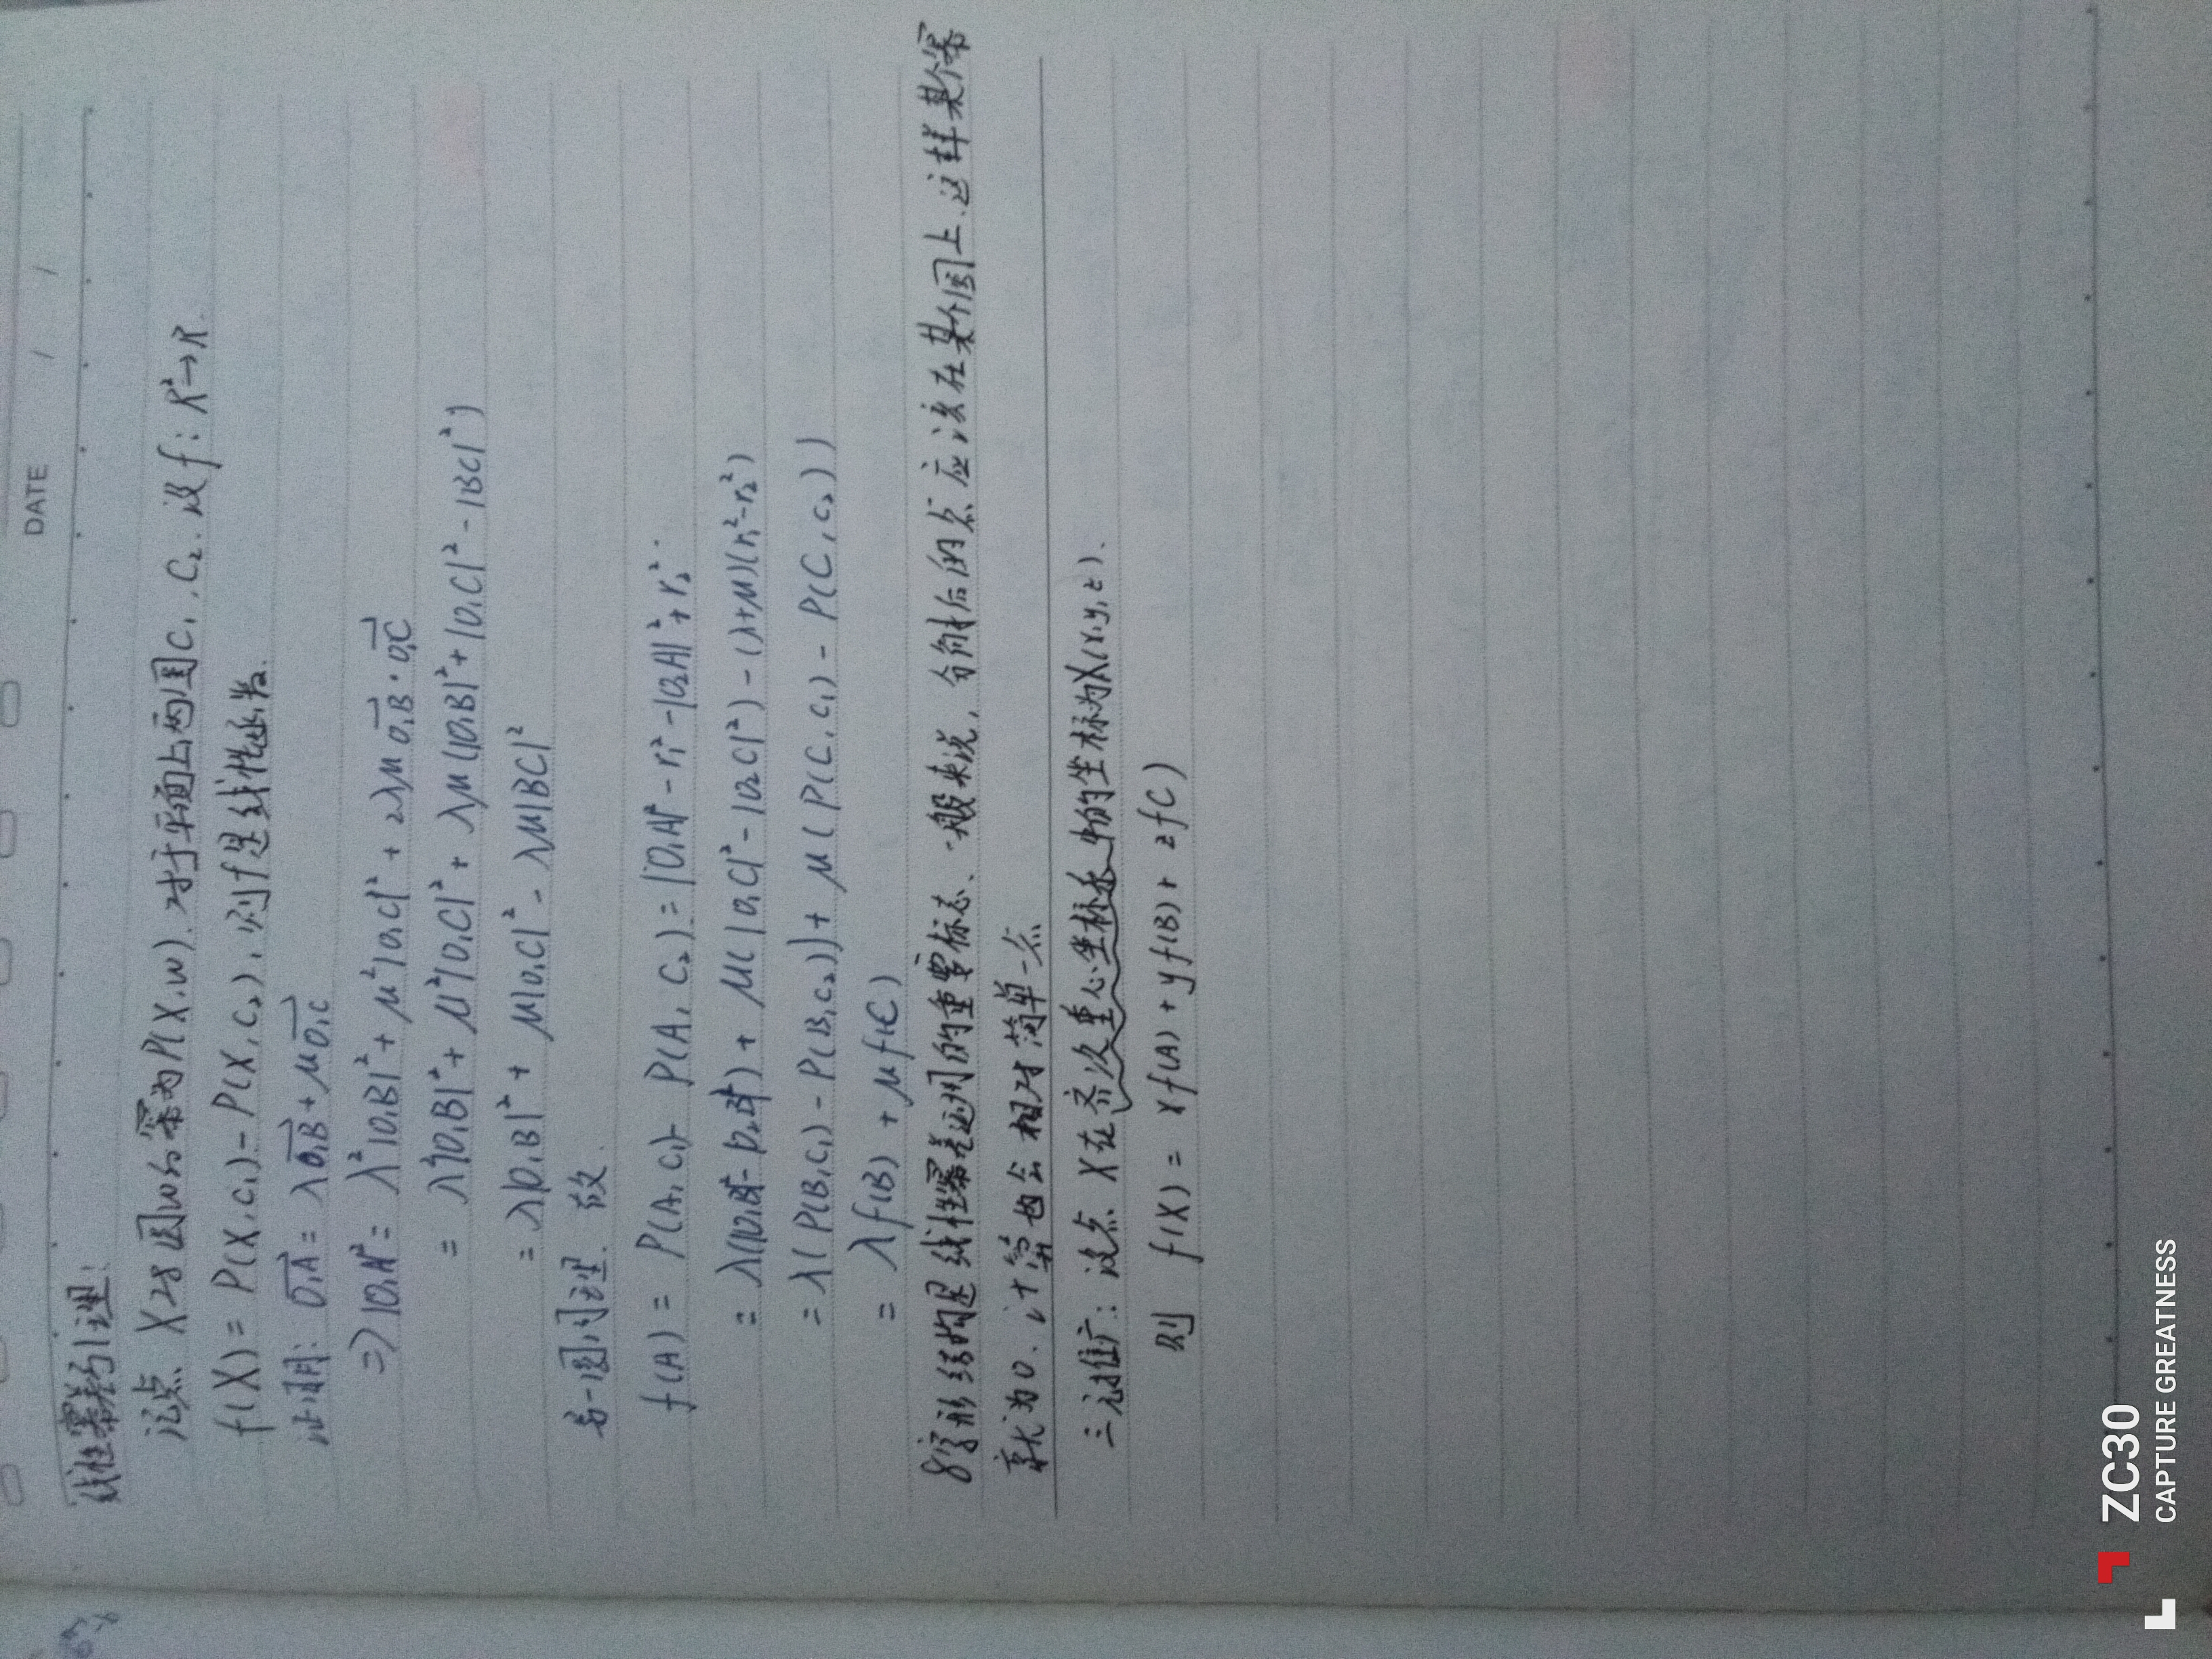 DATE / /
线性幂差引理:
记点 X 对圆ω的幂为P(X,ω). 对于平面上两圆C₁,C₂. 设 f: R²→R.
f(X) = P(X,C₁) - P(X,C₂), 则f是线性函数.
证明: O₁A = λO₁B + μO₁C
⇒ |O₁A|² = λ²|O₁B|² + μ²|O₁C|² + 2λμ O₁B · O₁C
= λ²|O₁B|² + μ²|O₁C|² + λμ(|O₁B|² + |O₁C|² - |BC|²)
= λ|O₁B|² + μ|O₁C|² - λμ|BC|²
另一圆同理. 故.
f(A) = P(A,C₁) - P(A,C₂) = |O₁A|² - r₁² - |O₂A|² + r₂².
= λ(|O₁B|² - |O₂B|²) + μ(|O₁C|² - |O₂C|²) - (λ+μ)(r₁² - r₂²)
= λ(P(B,C₁) - P(B,C₂)) + μ(P(C,C₁) - P(C,C₂))
= λf(B) + μf(C)
8字形结构是线性幂差运用的重要标志、一般来说, 分割后的点应该在某个圆上. 这样某个幂
就为0. 计算也会相对简单一点
三元推广: 设点 X在齐次重心坐标系中的坐标为X(x,y,z).
则 f(X) = xf(A) + yf(B) + zf(C)
ZC30
CAPTURE GREATNESS